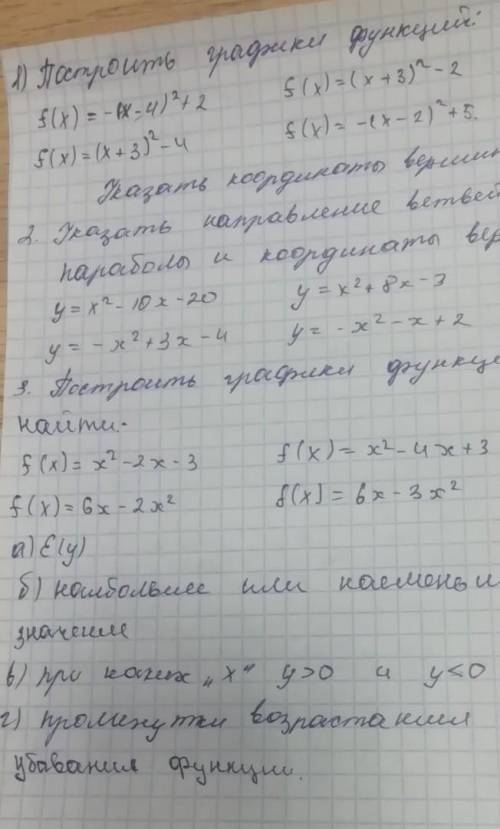 1) Построить графики функций:
f(x) = -(x-4)²+2 f(x)=(x+3)²-2
f(x)=(x+3)²-4 f(x)= -(x-2)²+5.
Указать координаты вершин
2. Указать направление ветвей
параболы и координаты вер
y=x²-10x-20 y=x²+8x-3
y= -x²+3x-4 y= -x²-x+2
3. Построить графики функци
найти.
f(x)=x²-2x-3 f(x)=x²-4x+3
f(x)=6x-2x² f(x)=6x-3x²
а) E(y)
б) наибольшее или наеменьш
значение
в) при каких „х" y>0 и y<0
г) промежутки возрастания
убывания функции.